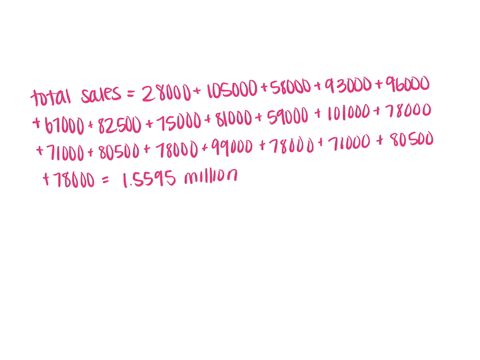 total sales = 28000 + 105000 + 58000 + 93000 + 96000
+ 67000 + 82500 + 75000 + 81000 + 59000 + 101000 + 78000
+ 71000 + 80500 + 78000 + 99000 + 78000 + 71000 + 80500
+ 78000 = 1.5595 million